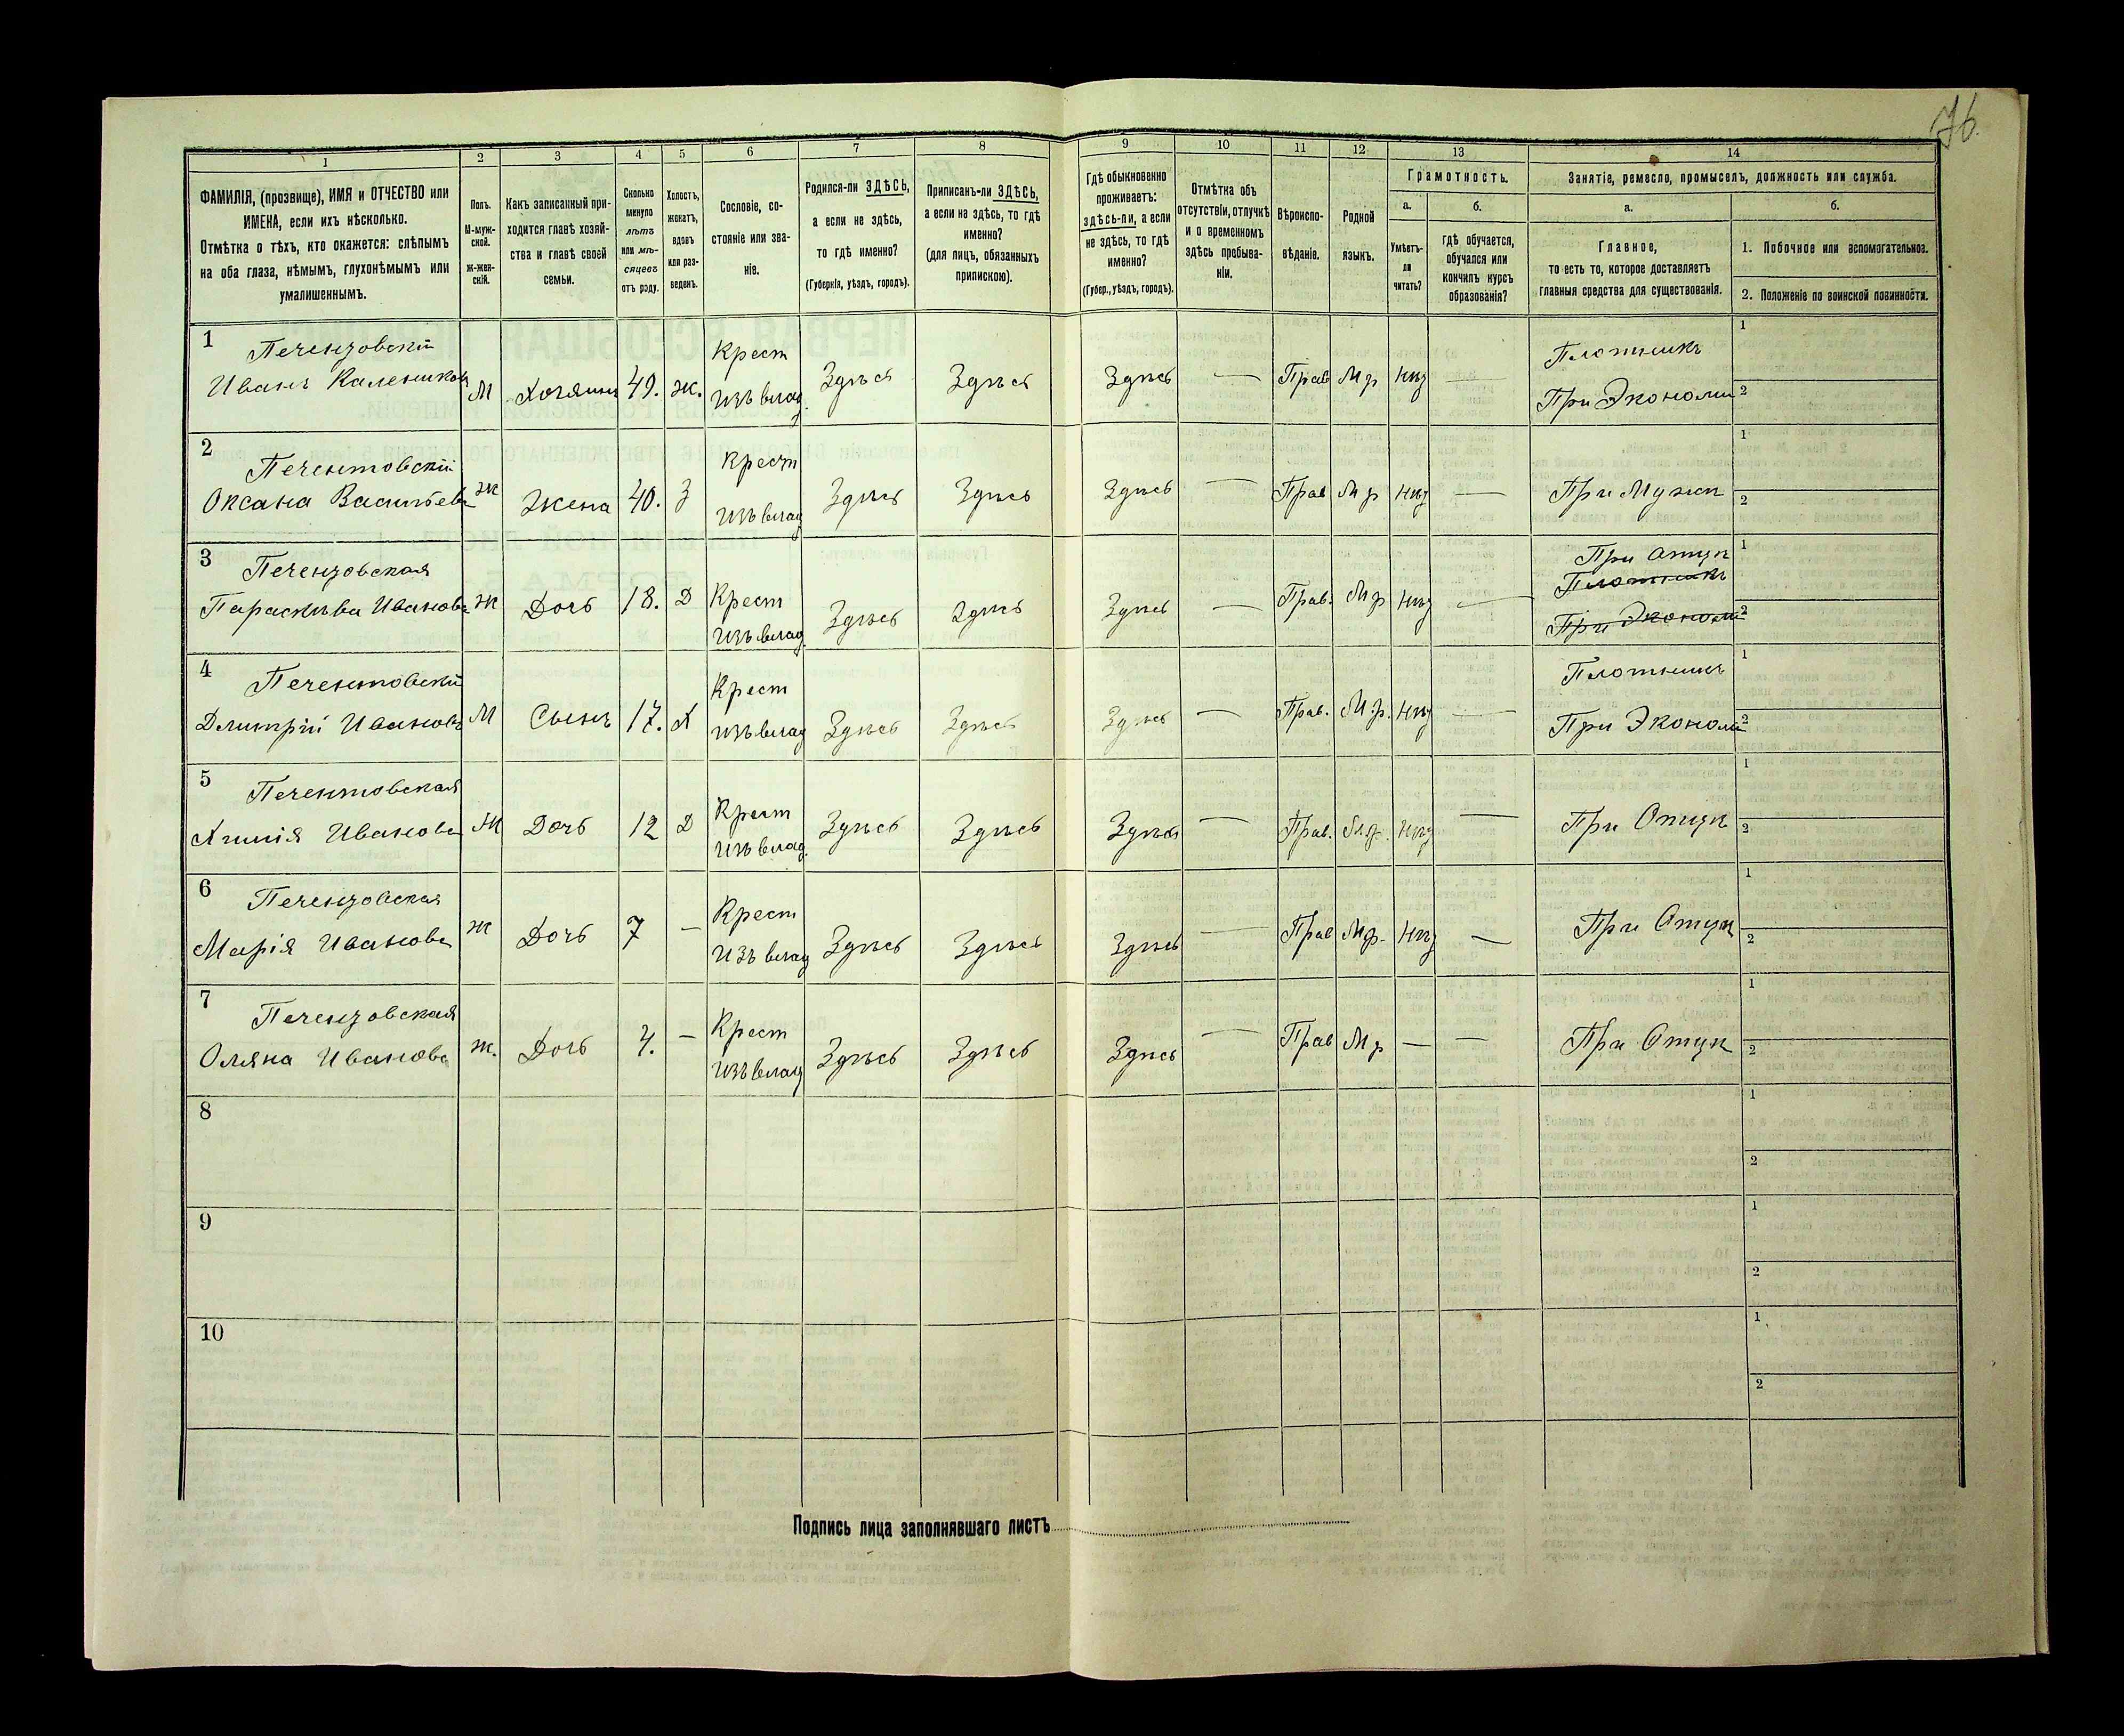 76.
1 2 3 4 5 6 7 8 9 10 11 12 13 14
ФАМИЛІЯ, (прозвище), ИМЯ и ОТЧЕСТВО или
ИМЕНА, если ихъ нѣсколько.
Отмѣтка о тѣхъ, кто окажется: слѣпымъ
на оба глаза, нѣмымъ, глухонѣмымъ или
умалишеннымъ.
Полъ.
М-муж-
ской.
Ж-жен-
скій.
Какъ записанный при-
ходится главѣ хозяй-
ства и главѣ своей
семьи.
Сколько
минуло
лѣтъ
или мѣ-
сяцевъ
отъ роду.
Холостъ,
женатъ,
вдовъ
или раз-
веденъ.
Сословіе, со-
стояніе или зва-
ніе.
Родился-ли ЗДѢСЬ,
а если не здѣсь,
то гдѣ именно?
(Губернія, уѣздъ, городъ).
Приписанъ-ли ЗДѢСЬ,
а если не здѣсь, то гдѣ
именно?
(для лицъ, обязанныхъ
припискою).
Гдѣ обыкновенно
проживаетъ:
здѣсь-ли, а если
не здѣсь, то гдѣ
именно?
(Губер., уѣздъ, городъ).
Отмѣтка объ
отсутствіи, отлучкѣ
и о временномъ
здѣсь пребыва-
ніи.
Вѣроиспо-
вѣданіе.
Родной
языкъ.
Грамотность.
а.
Умѣетъ-
ли
читать?
б.
гдѣ обучается,
обучался или
кончилъ курсъ
образованія?
Занятіе, ремесло, промыселъ, должность или служба.
а.
Главное,
то есть то, которое доставляетъ
главныя средства для существованія.
б.
1. Побочное или вспомогательное.
2. Положеніе по воинской повинности.
1 Печензовскій Крест Плотникъ 1
Иванъ Калениковъ М Хозяинъ 49. ж. изъ влад. Здѣсь Здѣсь Здѣсь — Прав Мр нѣт — При Экономи 2
2 Печентовскій Крест 1
Оксана Васильева Ж Жена 40. З изъ влад Здѣсь Здѣсь Здѣсь — Прав Мр нѣт — При Мужѣ 2
3 Печензовская При Отцѣ 1
Плотникъ
Параскѣва Иванова Ж Дочь 18. Д Крест изъ влад. Здѣсь Здѣсь Здѣсь — Прав. Мр нѣт — При Экономи 2
4 Печентовскій Крест Плотникъ 1
Дмитрій Ивановъ М Сынъ 17. Х изъ влад Здѣсь Здѣсь Здѣсь — Прав. М.р. нѣт — При Эконом 2
5 Печентовская 1
Иванова Ж Дочь 12 Д Крест изъ влад. Здѣсь Здѣсь Здѣсь — Прав. М.р. нѣт — При Отцѣ 2
6 Печензовская Крест 1
Марія Иванова Ж Дочь 7 — изъ влад Здѣсь Здѣсь Здѣсь — Прав Мр. нѣт — При Отцѣ 2
7 Печензовская Крест 1
Оляна Иванова Ж. Дочь 4. — изъ влад Здѣсь Здѣсь Здѣсь — Прав Мр — — При Отцѣ 2
8 1
2
9 1
2
10 1
2
Подпись лица заполнявшаго листъ